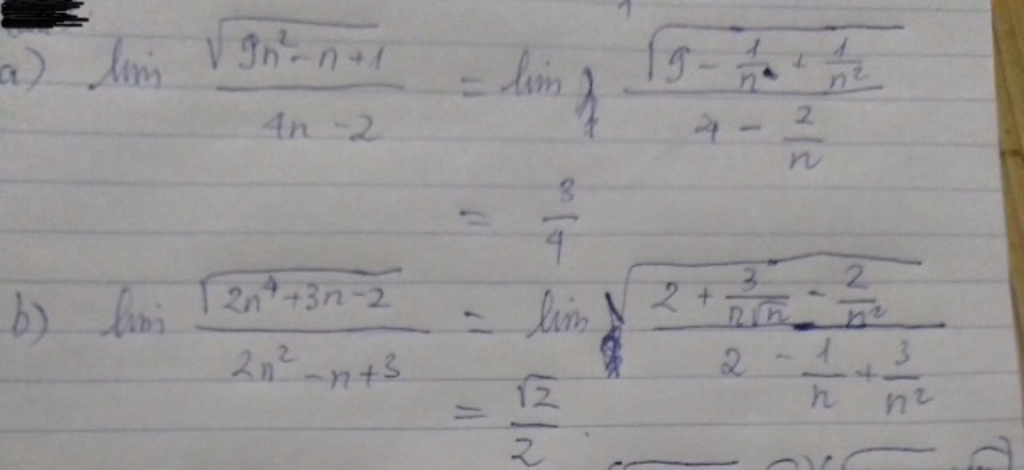 a) lim √(9n² - n + 1) / (4n - 2) = lim √(9 - 1/n + 1/n²) / (4 - 2/n)
= 3/4
b) lim √(2n⁴ + 3n - 2) / (2n² - n + 3) = lim √(2 + 3/(n√n) - 2/n²) / (2 - 1/n + 3/n²)
= √2/2